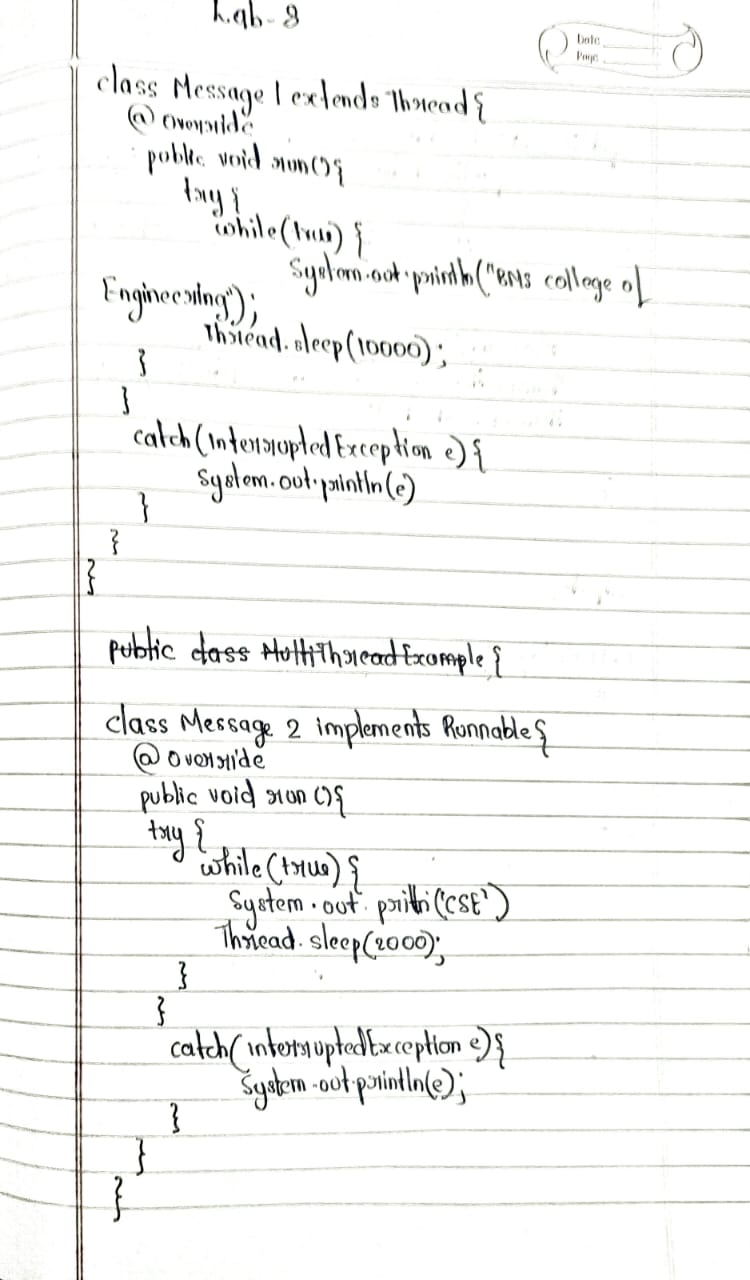 Lab-8
Date
Page
class Message 1 extends Thread {
@ Override
public void run() {
try {
while (true) {
System.out.println("BMS college of
Engineering");
Thread.sleep(10000);
}
}
catch (InterruptedException e) {
System.out.println(e)
}
}
}
public class MultiThreadExample {
class Message 2 implements Runnable {
@ Override
public void run () {
try {
while (true) {
System.out. println('CSE')
Thread. sleep(2000);
}
}
catch (interruptedException e) {
System.out.println(e);
}
}
}